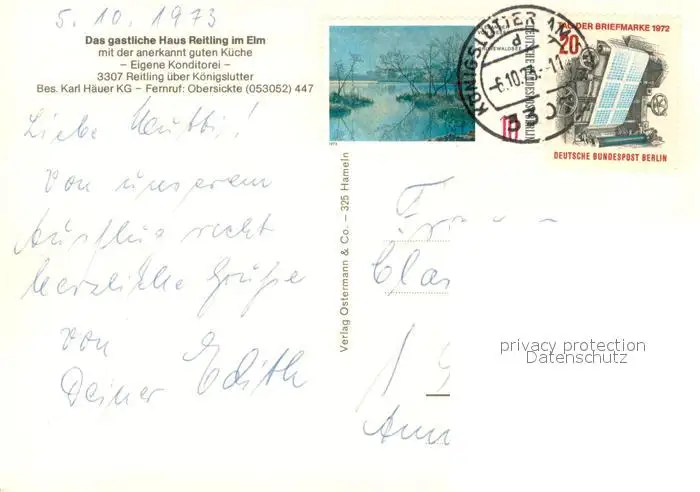 5.10.1973
Das gastliche Haus Reitling im Elm
mit der anerkannt guten Küche
– Eigene Konditorei –
3307 Reitling über Königslutter
Bes. Karl Häuer KG – Fernruf: Obersickte (053052) 447
Liebe Mutti!
Von unserem
Ausflug recht
herzliche Grüße
von
Deiner Edith
Verlag Ostermann & Co. – 325 Hameln
10
DEUTSCHE BUNDESPOST BERLIN
KÖNIGSLUTTER AM
-6.10.73.-11
33
TAG DER BRIEFMARKE 1972
20
DEUTSCHE BUNDESPOST BERLIN
privacy protection
Datenschutz